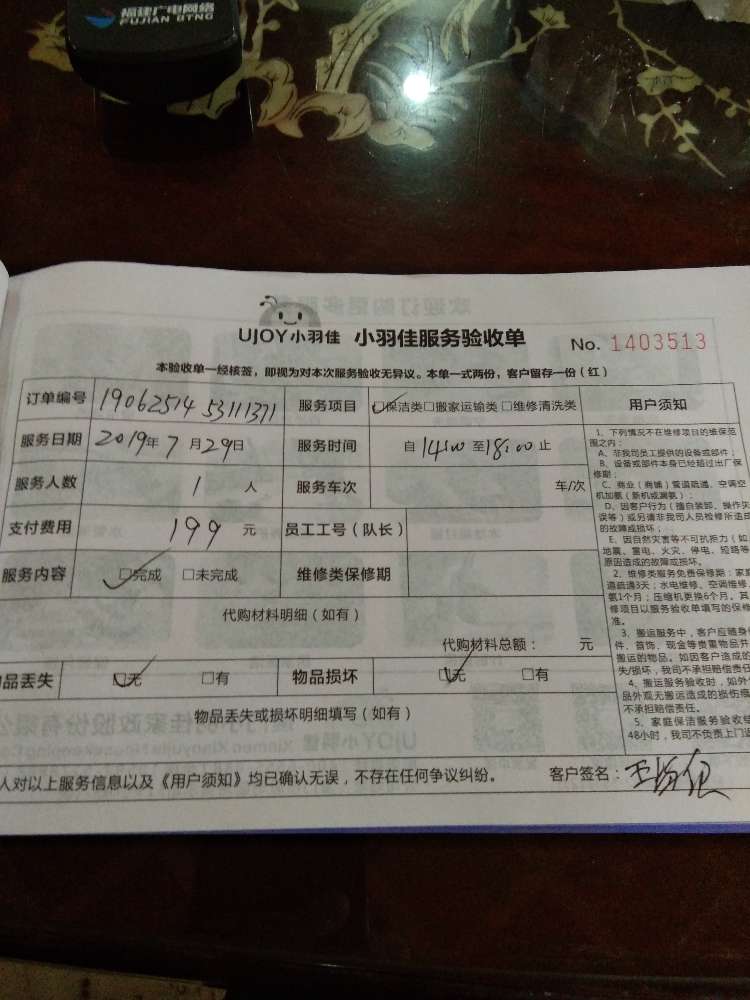 福建广电网络
FUJIAN BTNG
UJOY小羽佳 小羽佳服务验收单 No. 1403513
本验收单一经核签，即视为对本次服务验收无异议。本单一式两份，客户留存一份（红）
订单编号 1906251453111371 服务项目 ☑保洁类□搬家运输类□维修清洗类 用户须知
服务日期 2019年7月29日 服务时间 自14:00至18:00止
服务人数 1 人 服务车次 车/次
支付费用 199 元 员工工号（队长）
服务内容 ☑完成 □未完成 维修类保修期
代购材料明细（如有）
代购材料总额： 元
品丢失 ☑无 □有 物品损坏 ☑无 □有
物品丢失或损坏明细填写（如有）
人对以上服务信息以及《用户须知》均已确认无误，不存在任何争议纠纷。 客户签名：
1、下列情况不在维修项目的维保范
围之内：
A、非我司员工提供的设备或部件；
B、设备或部件本身已经超过出厂保
修期；
C、商业（商铺）管道疏通、空调空
机加氨（新机或漏氨）；
D、因客户行为（擅自装卸、操作失
误等）或另请非我司人员检修所造成
的故障或损坏；
E、因自然灾害等不可抗拒力（如
地震、雷电、火灾、停电、短路等
原因造成的故障或损坏。
2、维修类服务免费保修期：家庭
道疏通3天；水电维修、空调维修、
氨1个月；压缩机更换6个月。其
修项目以服务验收单填写的保修
准。
3、搬运服务中，客户应随身
件、首饰、现金等贵重物品并
搬运的物品。如因客户造成的
失/损坏，我司不承担赔偿责任
4、搬运服务验收时，如外
品外观无搬运造成的损伤痕
不承担赔偿责任。
5、家庭保洁服务验收结
48小时，我司不负责上门返